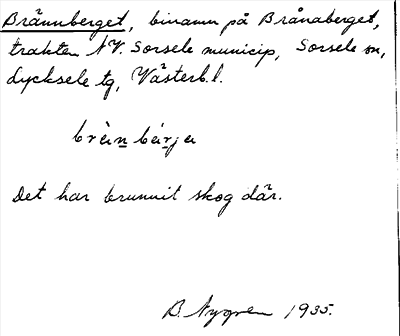 Brännberget, binamn på Brånaberget,
trakten NV. Sorsele municip, Sorsele sn,
Lycksele tg, Västerb.l.
brän bärja
Det har brunnit skog där.
B. Nygren 1935.